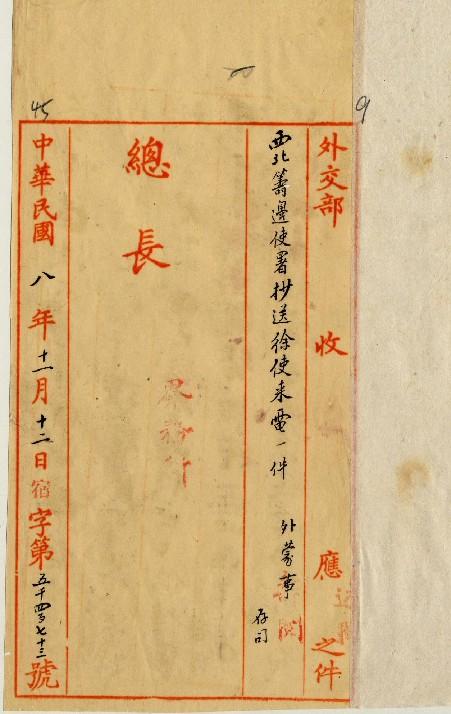 9
45
外交部 收 應 之件
西北籌邊使署抄送徐使来電一件 外蒙事
存司
總長
中華民國八年十一月十二日宿字第五千四百七十三號